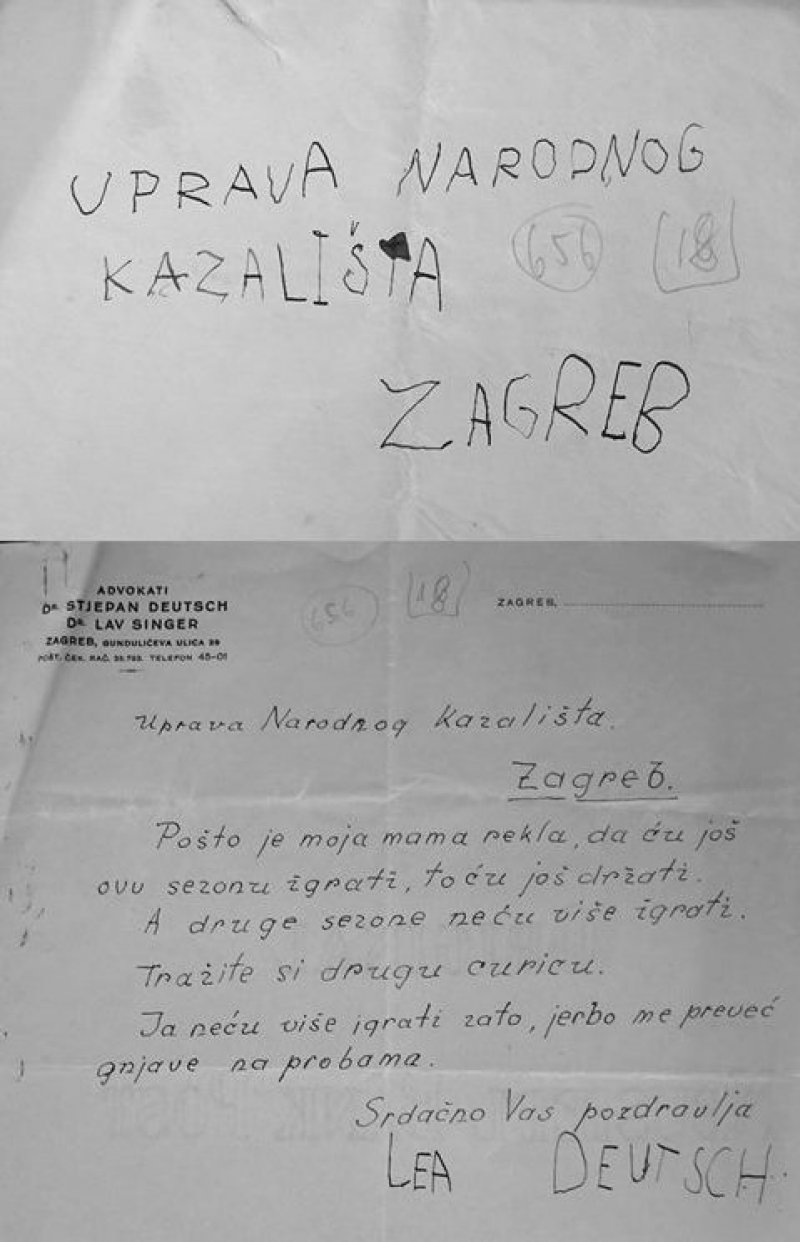 UPRAVA NARODNOG
KAZALIŠTA
656 18
ZAGREB
ADVOKATI
DR. STJEPAN DEUTSCH
DR. LAV SINGER
ZAGREB, GUNDULIĆEVA ULICA 29
POŠT. ČEK. RAČ. TELEFON 45-01
656 18
ZAGREB,
Uprava Narodnog Kazališta.
Zagreb.
Pošto je moja mama rekla, da ću još
ovu sezonu igrati, to ću još držati.
A druge sezone neću više igrati.
Tražite si drugu curicu.
Ja neću više igrati zato, jerbo me preveć
gnjave na probama.
Srdačno Vas pozdravlja
LEA DEUTSCH.